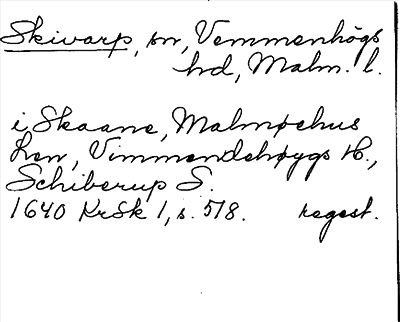 Skivarp, sn, Vemmenhögs
hd, Malm. l.
i Skaane, Malmøehus
Len, Vimmendehøygs H.,
Schiberup S.
1640 KrSk 1, s. 518. regest.